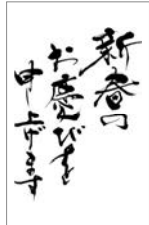 新春の
お慶びを
申し上げます